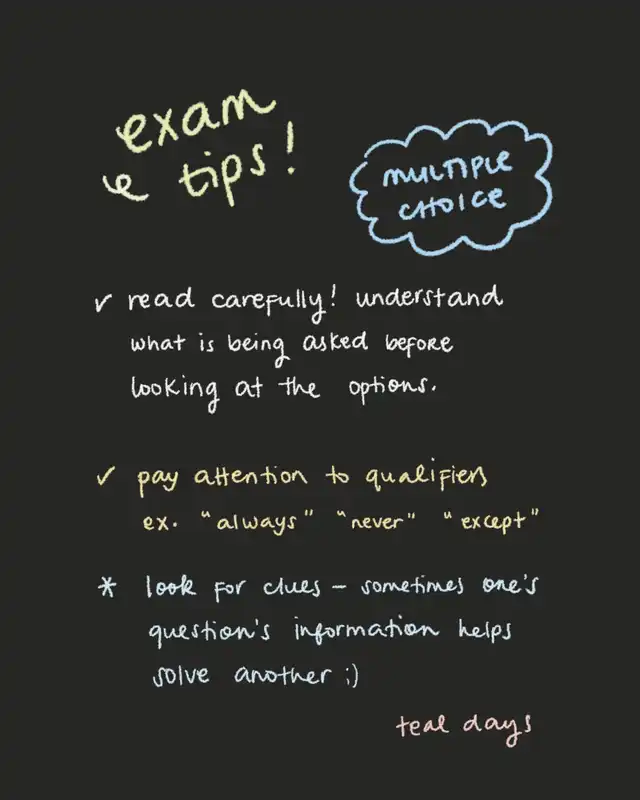 exam
tips!
MULTIPLE
CHOICE
✓ read carefully! understand
what is being asked before
looking at the options.
✓ pay attention to qualifiers
ex. "always" "never" "except"
* look for clues – sometimes one's
question's information helps
solve another ;)
teal days